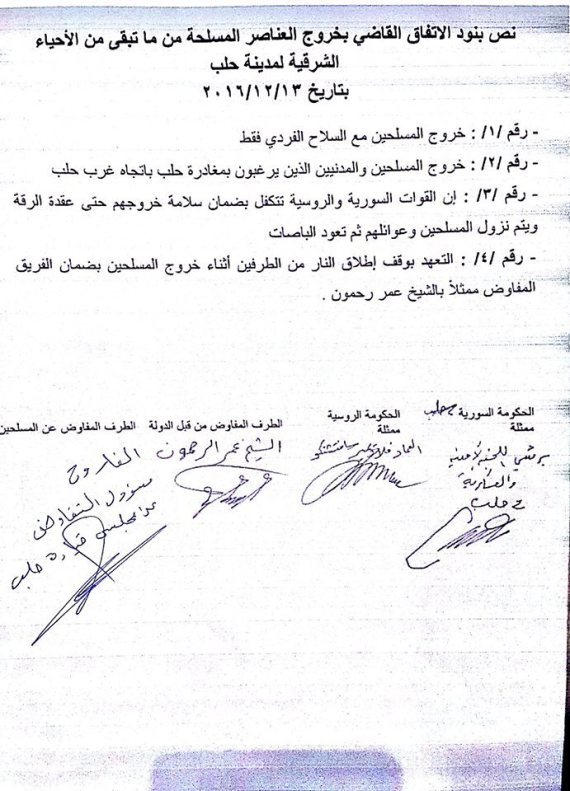 نص بنود الاتفاق القاضي بخروج العناصر المسلحة من ما تبقى من الأحياء
الشرقية لمدينة حلب
بتاريخ ٢٠١٦/١٢/١٣
- رقم /١/ : خروج المسلحين مع السلاح الفردي فقط
- رقم /٢/ : خروج المسلحين والمدنيين الذين يرغبون بمغادرة حلب باتجاه غرب حلب
- رقم /٣/ : إن القوات السورية والروسية تتكفل بضمان سلامة خروجهم حتى عقدة الرقة
ويتم نزول المسلحين وعوائلهم ثم تعود الباصات
- رقم /٤/ : التعهد بوقف إطلاق النار من الطرفين أثناء خروج المسلحين بضمان الفريق
المفاوض ممثلاً بالشيخ عمر رحمون .
الحكومة السورية بحلب
ممثلة
برئيس اللجنة الأمنية
والعسكرية
في حلب
الحكومة الروسية
ممثلة
العماد
الطرف المفاوض من قبل الدولة
الشيخ عمر الرحمون
الطرف المفاوض عن المسلحين
الفاروق
مسؤول التفاوض
عن مجلس قيادة حلب